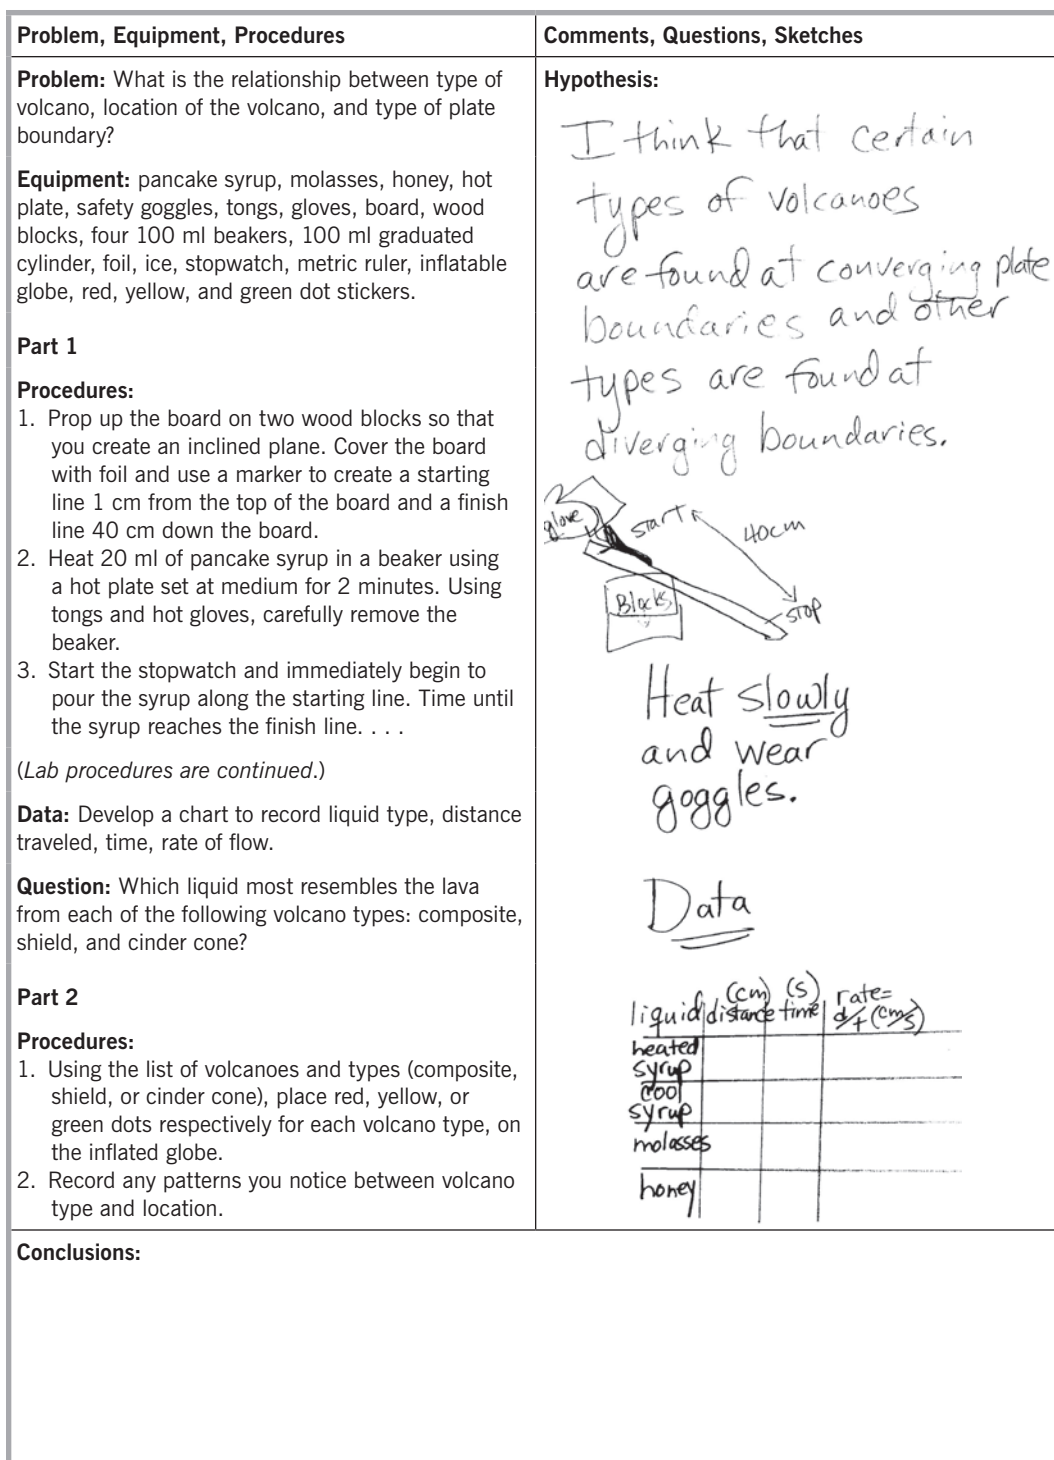 Problem, Equipment, Procedures
Comments, Questions, Sketches
Problem: What is the relationship between type of
volcano, location of the volcano, and type of plate
boundary?
Equipment: pancake syrup, molasses, honey, hot
plate, safety goggles, tongs, gloves, board, wood
blocks, four 100 ml beakers, 100 ml graduated
cylinder, foil, ice, stopwatch, metric ruler, inflatable
globe, red, yellow, and green dot stickers.
Part 1
Procedures:
1. Prop up the board on two wood blocks so that
you create an inclined plane. Cover the board
with foil and use a marker to create a starting
line 1 cm from the top of the board and a finish
line 40 cm down the board.
2. Heat 20 ml of pancake syrup in a beaker using
a hot plate set at medium for 2 minutes. Using
tongs and hot gloves, carefully remove the
beaker.
3. Start the stopwatch and immediately begin to
pour the syrup along the starting line. Time until
the syrup reaches the finish line. . . .
(Lab procedures are continued.)
Data: Develop a chart to record liquid type, distance
traveled, time, rate of flow.
Question: Which liquid most resembles the lava
from each of the following volcano types: composite,
shield, and cinder cone?
Part 2
Procedures:
1. Using the list of volcanoes and types (composite,
shield, or cinder cone), place red, yellow, or
green dots respectively for each volcano type, on
the inflated globe.
2. Record any patterns you notice between volcano
type and location.
Hypothesis:
I think that certain
types of volcanoes
are found at converging plate
boundaries and other
types are found at
diverging boundaries.
glove
start
40cm
Blocks
stop
Heat slowly
and wear
goggles.
Data
liquid distance (cm) time (s) rate= d/t (cm/s)
heated
syrup
cool
syrup
molasses
honey
Conclusions: